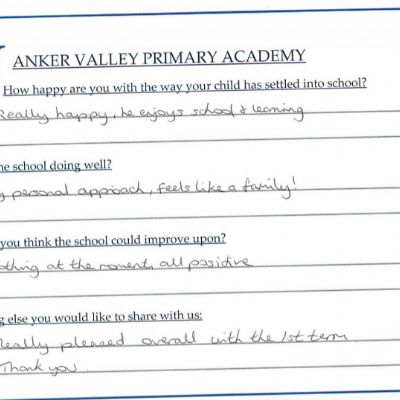 ANKER VALLEY PRIMARY ACADEMY
How happy are you with the way your child has settled into school?
Really happy, he enjoys school & learning
he school doing well?
personal approach, feels like a family!
you think the school could improve upon?
othing at the moment, all positive
g else you would like to share with us:
Really pleased overall with the 1st term
Thank you